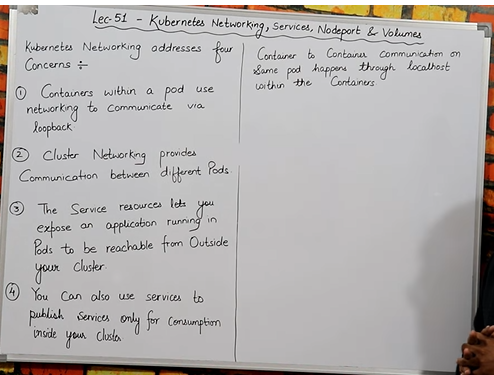 Lec-51 - Kubernetes Networking, Services, Nodeport & Volumes
Kubernetes Networking addresses four
Concerns ÷
① Containers within a pod use
networking to communicate via
loopback
② Cluster Networking provides
Communication between different Pods.
③ The Service resources lets you
expose an application running in
Pods to be reachable from Outside
your Cluster.
④ You Can also use services to
publish Services only for Consumption
inside your Cluster
Container to Container communication on
Same pod happens through localhost
within the Containers